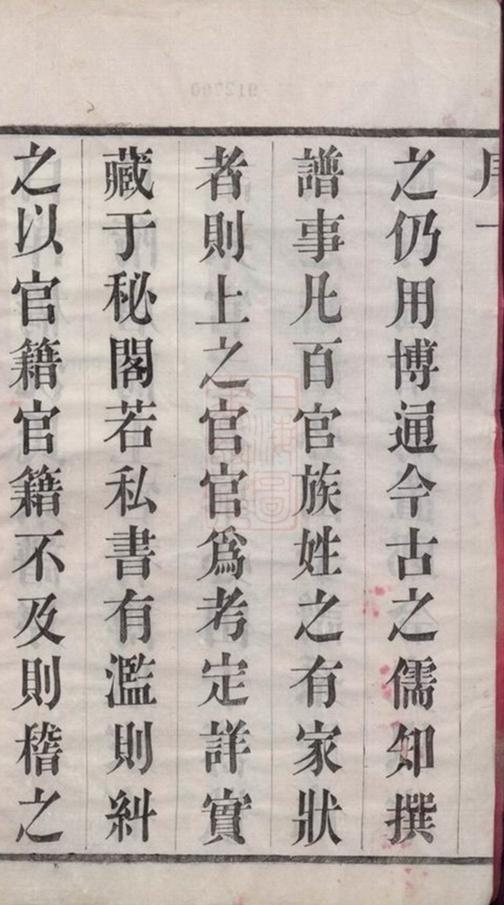 之仍用博通今古之儒知撰
譜事凡百官族姓之有家狀
者則上之官官爲考定詳實
藏于秘閣若私書有濫則糾
之以官籍官籍不及則稽之